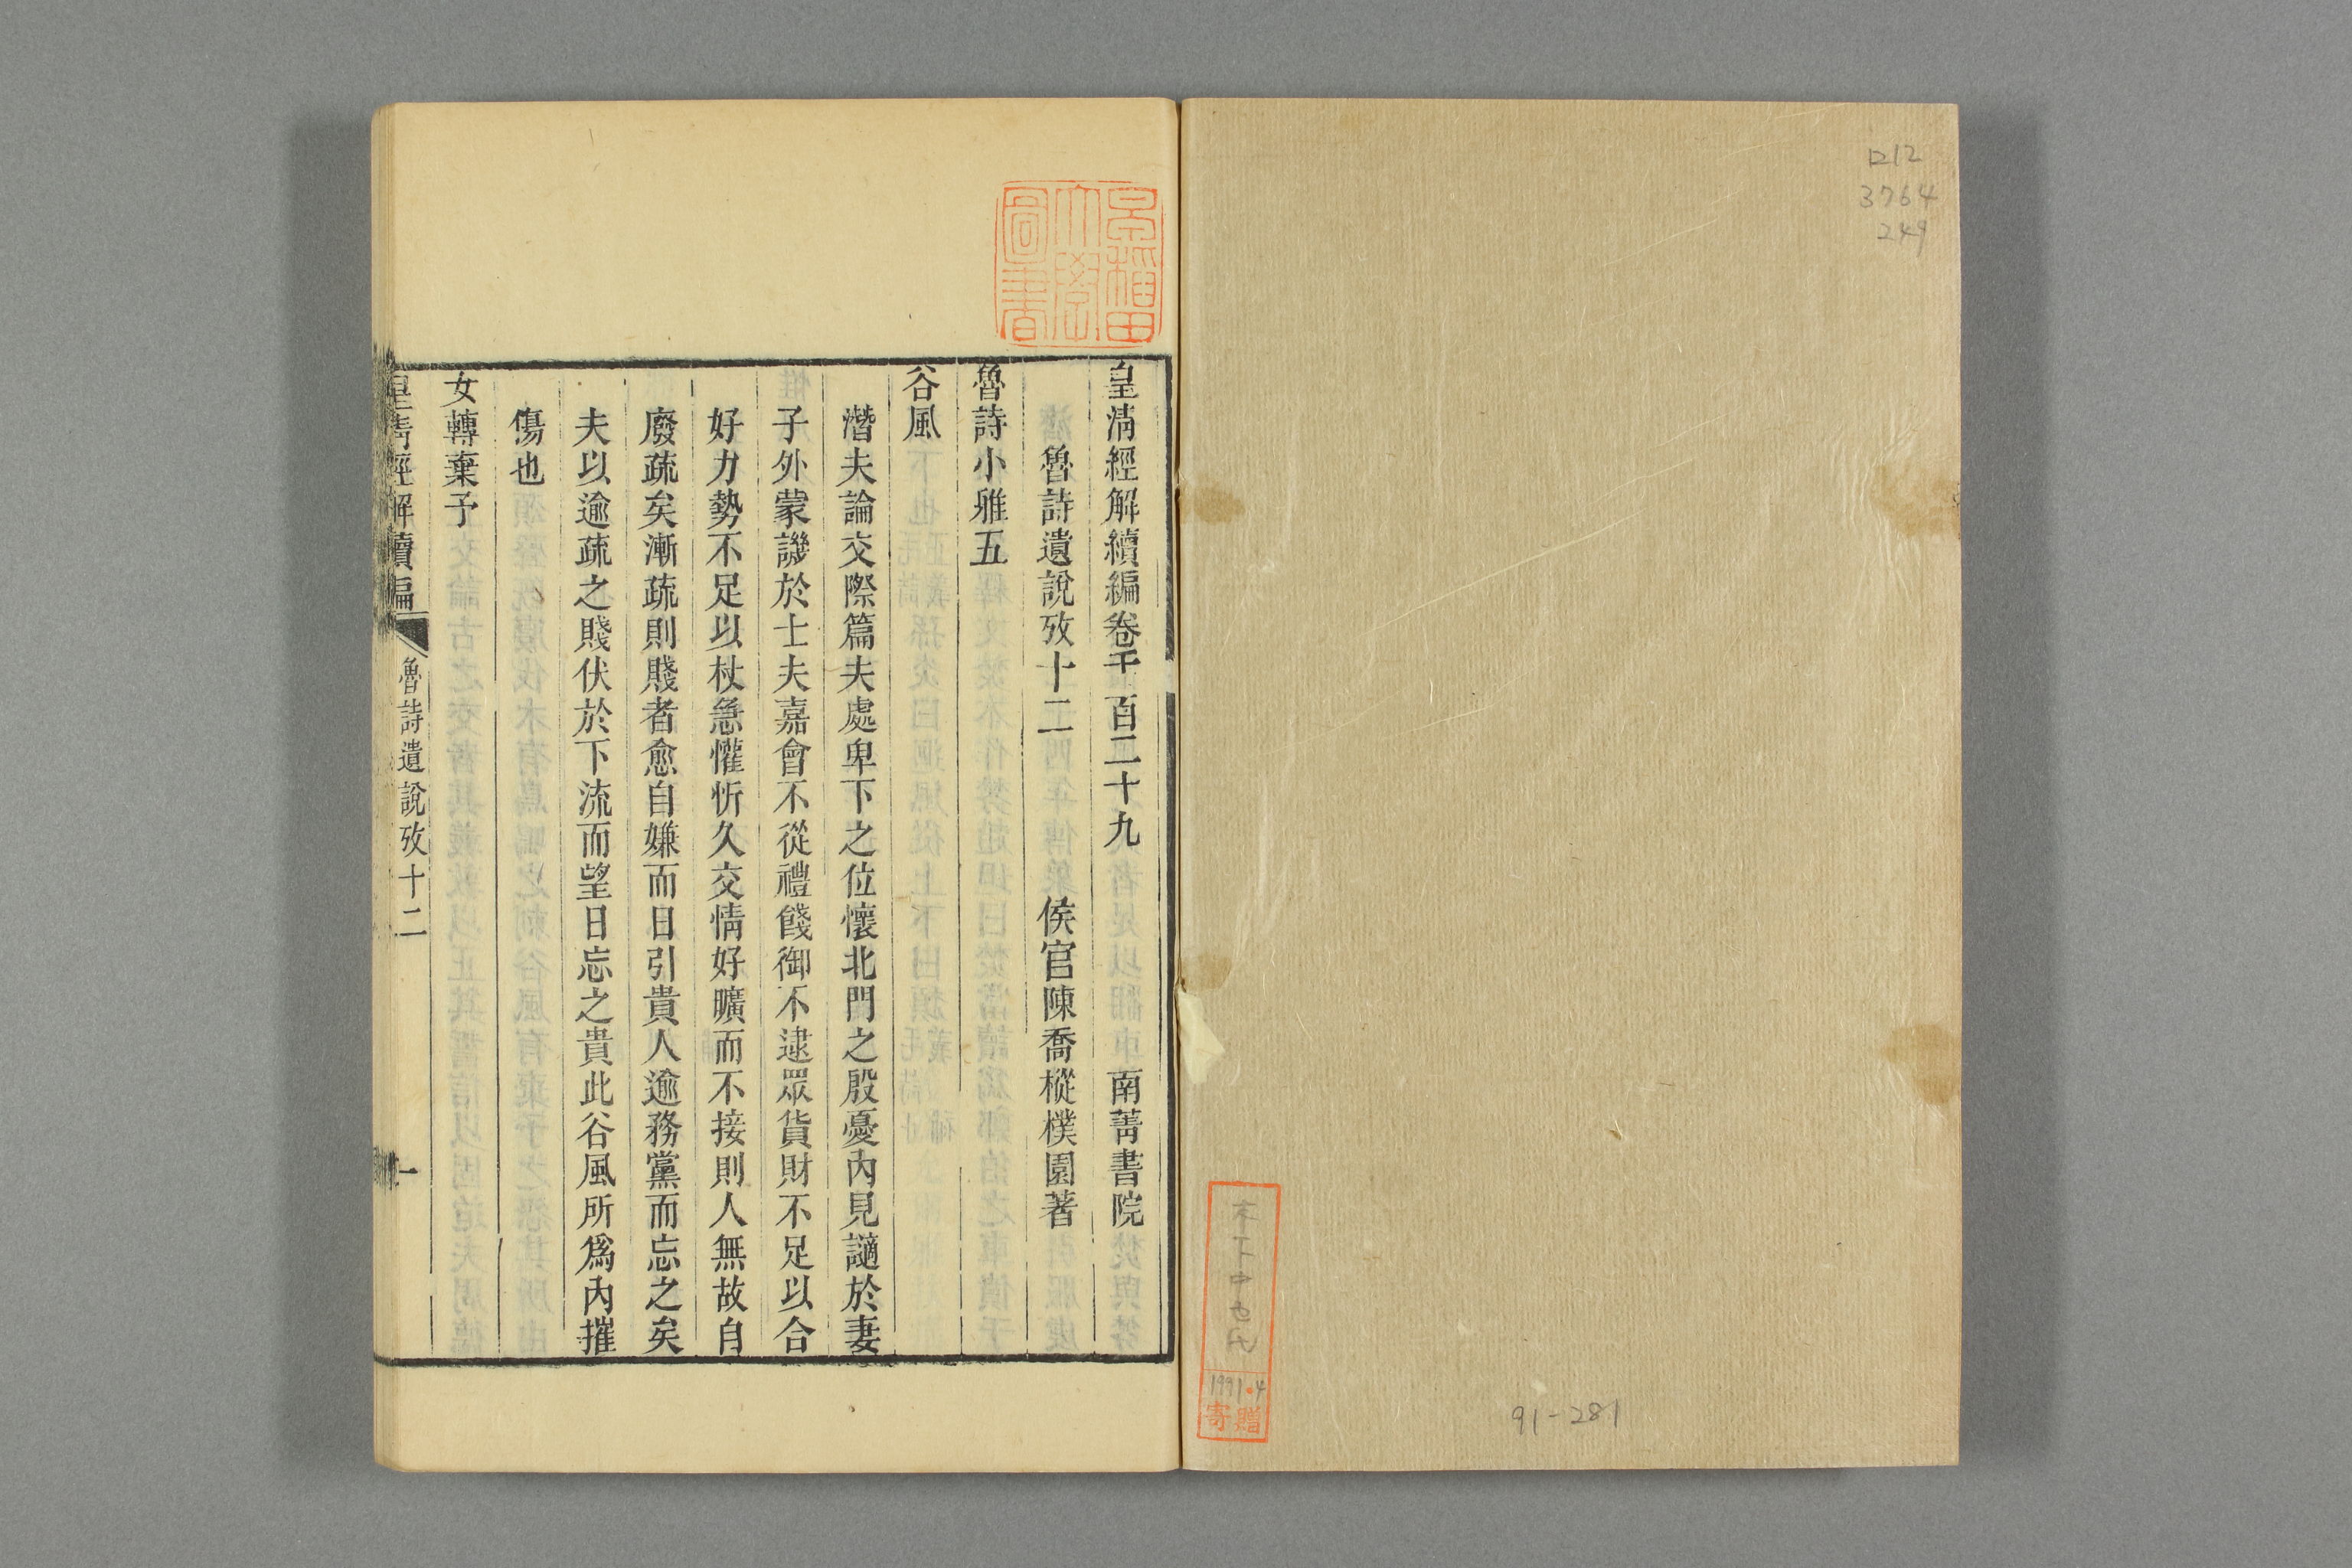 ロ12
3764
249
91-281
木下中也氏
1991.4
寄贈
早稲田大學圖書
皇淸經解續編卷千一百二十九 南菁書院
魯詩遺說攷十二 侯官陳喬樅樸園著
魯詩小雅五
谷風
潛夫論交際篇夫處卑下之位懷北門之殷憂內見讁於妻
子外蒙譏於士夫嘉會不從禮餞御不逮眾貨財不足以合
好力勢不足以杖急懽忻久交情好曠而不接則人無故自
廢疏矣漸疏則賤者愈自嫌而日引貴人逾務黨而忘之矣
夫以逾疏之賤伏於下流而望日忘之貴此谷風所爲內摧
傷也
女轉棄予
皇淸經解續編 魯詩遺說攷十二 一